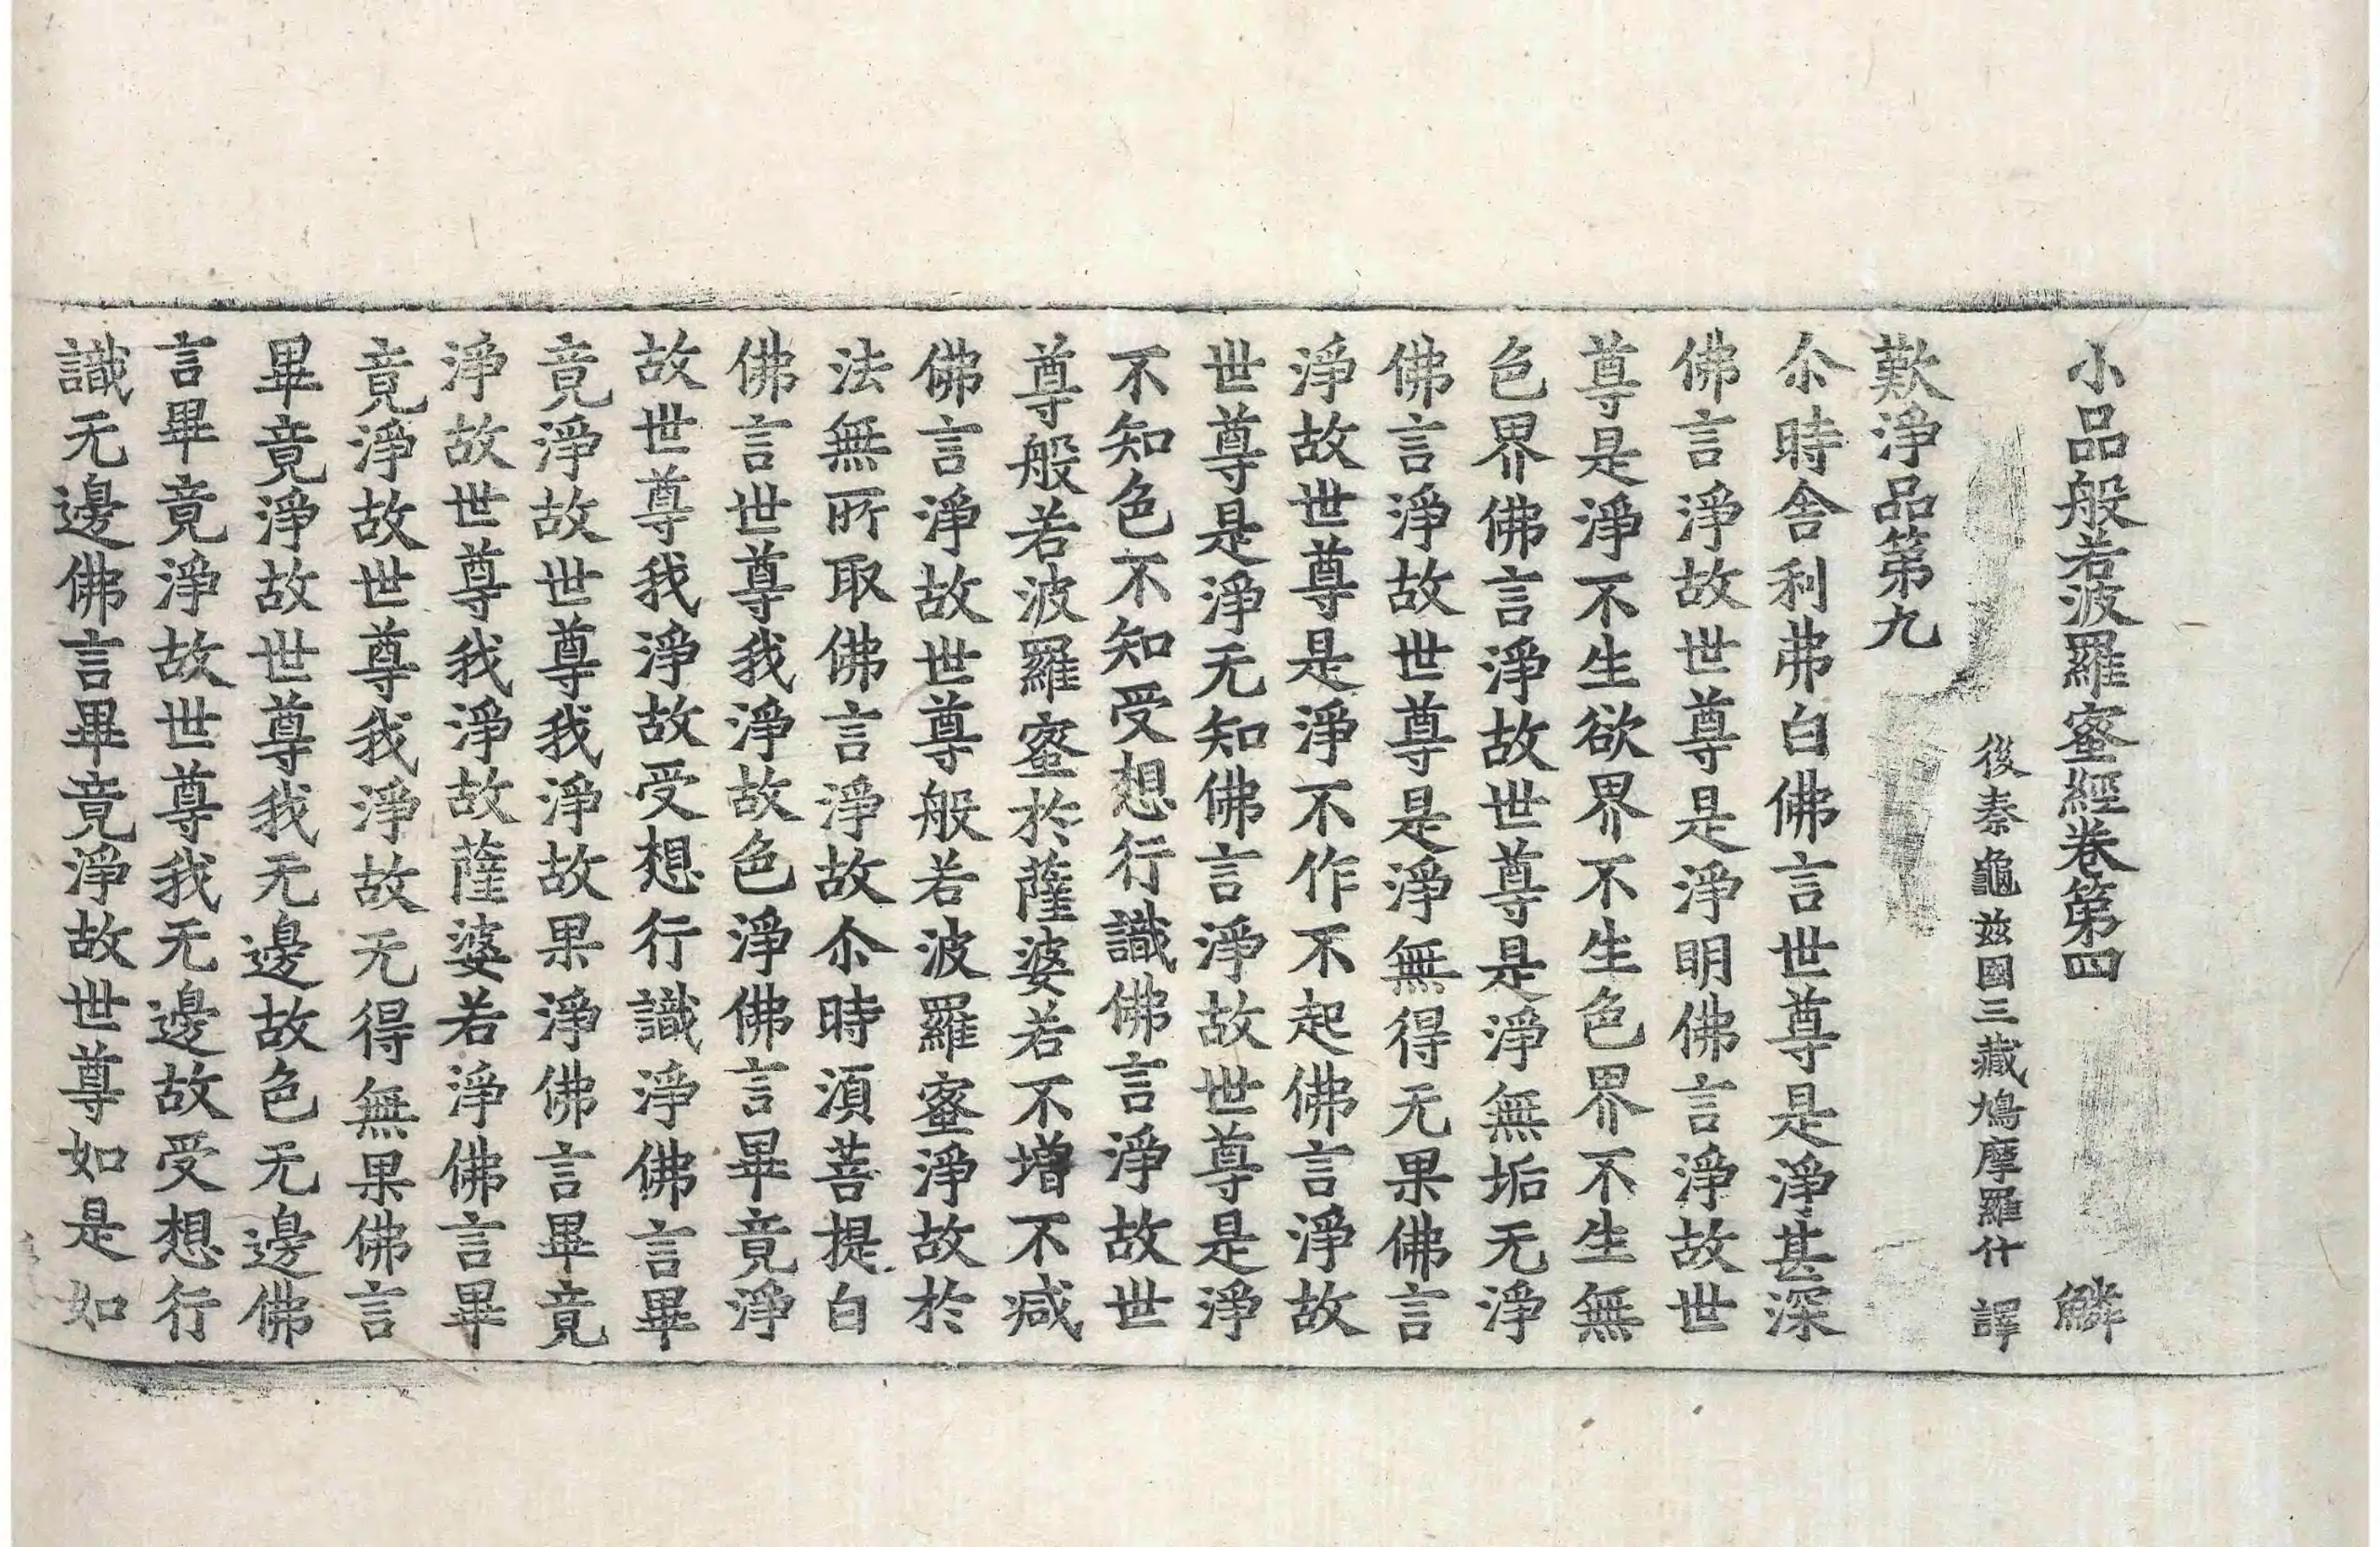 小品般若波羅蜜經卷第四 鱗
後秦龜茲國三藏鳩摩羅什 譯
歎淨品第九
尒時舍利弗白佛言世尊是淨甚深
佛言淨故世尊是淨明佛言淨故世
尊是淨不生欲界不生色界不生無
色界佛言淨故世尊是淨無垢无淨
佛言淨故世尊是淨無得无果佛言
淨故世尊是淨不作不起佛言淨故
世尊是淨无知佛言淨故世尊是淨
不知色不知受想行識佛言淨故世
尊般若波羅蜜於薩婆若不增不減
佛言淨故世尊般若波羅蜜淨故於
法無所取佛言淨故尒時湏菩提白
佛言世尊我淨故色淨佛言畢竟淨
故世尊我淨故受想行識淨佛言畢
竟淨故世尊我淨故果淨佛言畢竟
淨故世尊我淨故薩婆若淨佛言畢
竟淨故世尊我淨故无得無果佛言
畢竟淨故世尊我无邊故色无邊佛
言畢竟淨故世尊我无邊故受想行
識无邊佛言畢竟淨故世尊如是如